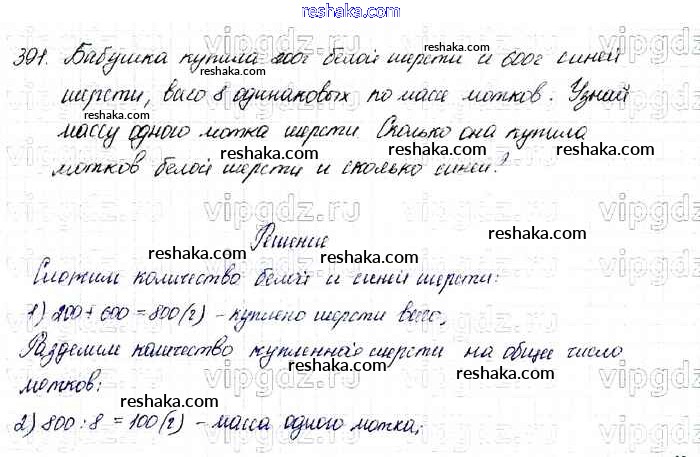 reshaka.com
391. Бабушка купила 200г белой шерсти и 600г синей
reshaka.com
шерсти, всего 8 одинаковых по массе мотков. Узнай
массу одного мотка шерсти. Сколько она купила
reshaka.com reshaka.com
мотков белой шерсти и сколько синей?
reshaka.com
vipgdz.ru vipgdz.ru vipgdz.ru
Решение
reshaka.com
Сложим количество белой и синей шерсти:
reshaka.com
vipgdz.ru vipgdz.ru vipgdz.ru
1) 200+600=800(г) – куплено шерсти всего,
reshaka.com
Разделим количество купленной шерсти на общее число
мотков:
reshaka.com
vipgdz.ru vipgdz.ru vipgdz.ru
2) 800:8=100(г) – масса одного мотка;
reshaka.com